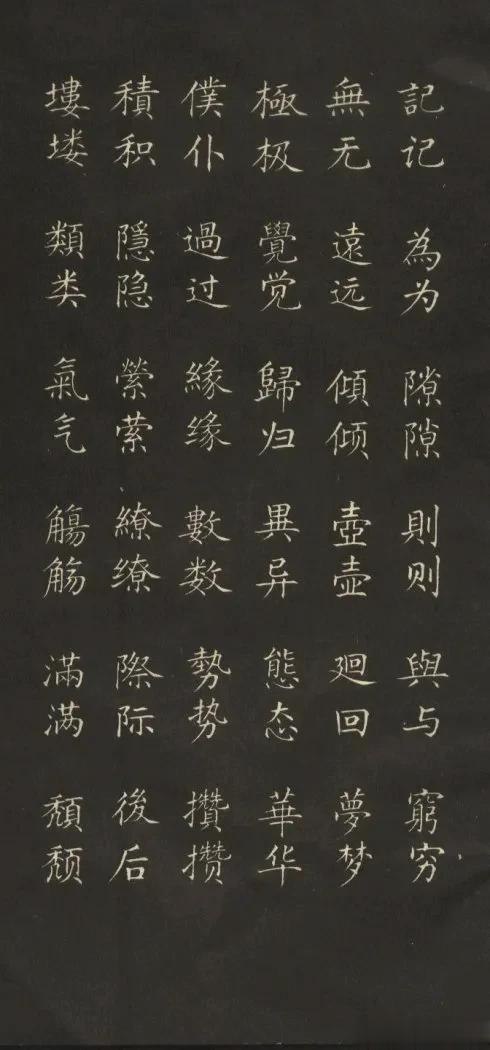 記记 為为 隙隙 則则 與与 窮穷
無无 遠远 傾倾 壺壶 廻回 夢梦
極极 覺觉 歸归 異异 態态 華华
僕仆 過过 緣缘 數数 勢势 攢攒
積积 隱隐 縈萦 繚缭 際际 後后
塿𪣻 類类 氣气 觴觞 滿满 頹颓